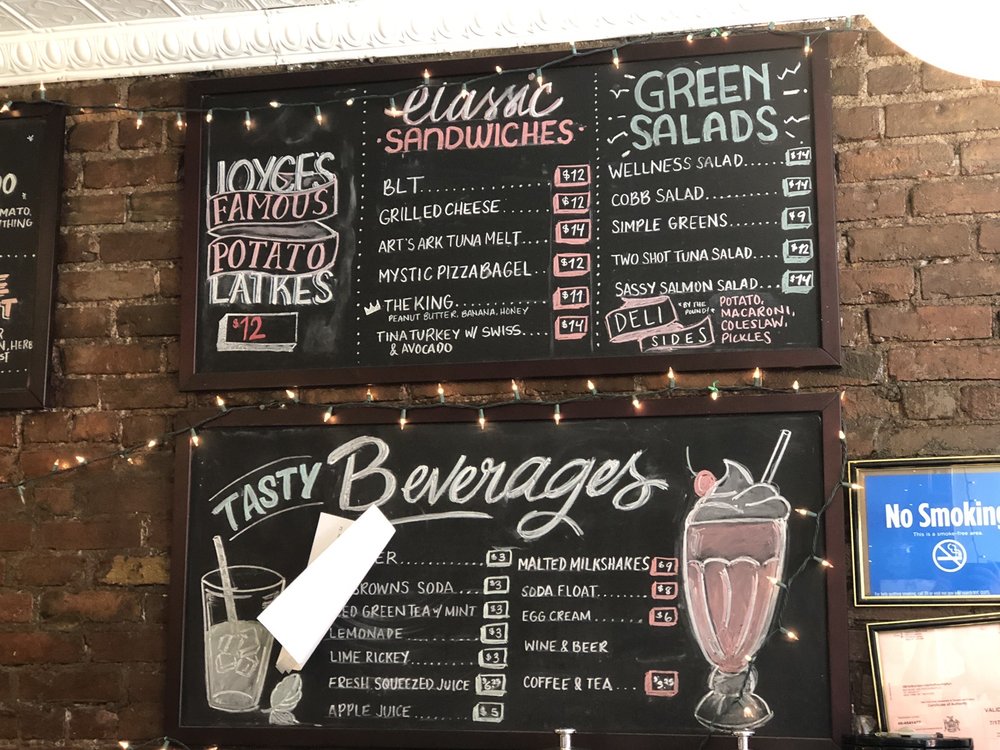 MATO,
THING
HERB
JOYCES
FAMOUS
POTATO
LATKES
$12
Classic
SANDWICHES
BLT...... $12
GRILLED CHEESE...... $12
ART'S ARK TUNA MELT.... $14
MYSTIC PIZZABAGEL.. $12
THE KING........... $11
PEANUT BUTTER, BANANA, HONEY
TINA TURKEY W/ SWISS.... $14
& AVOCADO
GREEN
SALADS
WELLNESS SALAD...... $14
COBB SALAD........ $14
SIMPLE GREENS...... $9
TWO SHOT TUNA SALAD.... $12
SASSY SALMON SALAD... $14
DELI
SIDES
BY THE
POUND!
POTATO,
MACARONI,
COLESLAW,
PICKLES
TASTY Beverages
$3
BROWNS SODA.... $3
GREEN TEA W/ MINT $3
LEMONADE........ $3
LIME RICKEY....... $3
FRESH SQUEEZED JUICE
APPLE JUICE....... $5
MALTED MILKSHAKES $9
SODA FLOAT....... $8
EGG CREAM..... $6
WINE & BEER
COFFEE & TEA...
No Smoking
This is a smoke-free area.